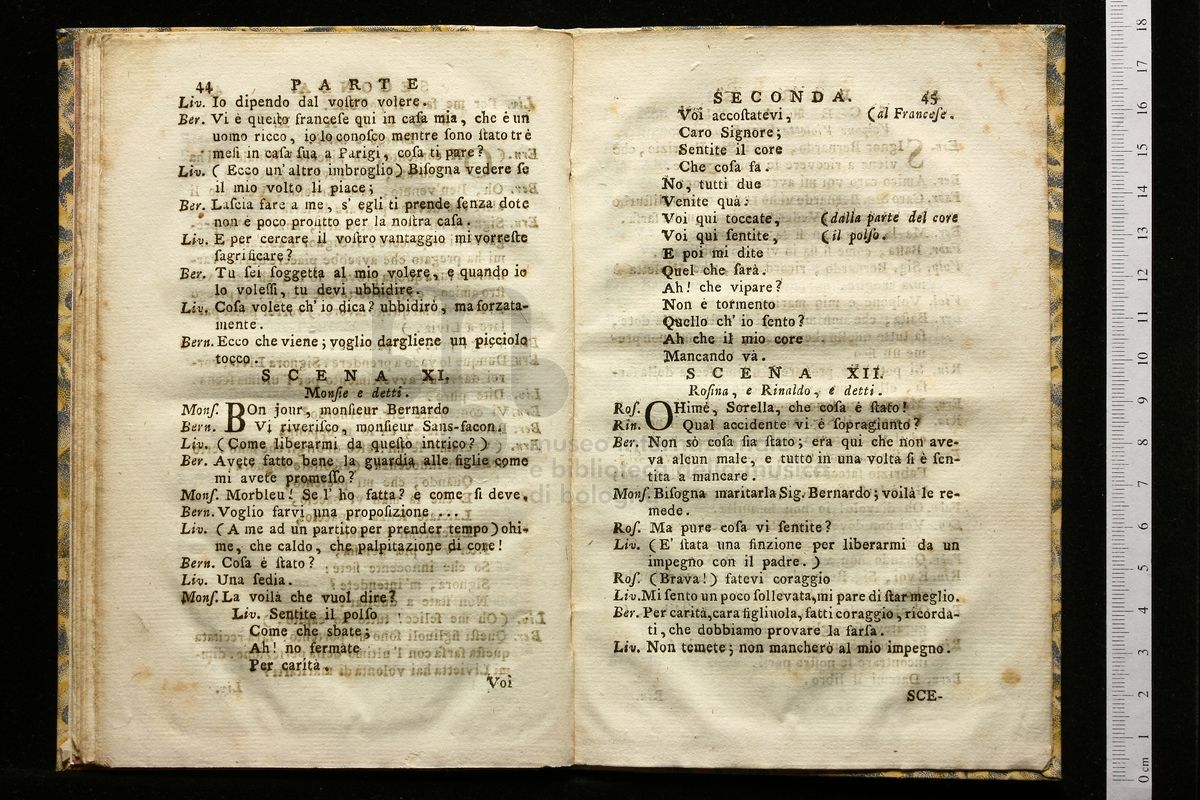 44 PARTE
Liv. Io dipendo dal voſtro volere.
Ber. Vi è queſto franceſe qui in caſa mia, che è un
uomo ricco, io lo conoſco mentre ſono ſtato trè
meſi in caſa ſua a Parigi, coſa ti pare?
Liv. (Ecco un' altro imbroglio) Biſogna vedere ſe
il mio volto li piace;
Ber. Laſcia fare a me, s' egli ti prende ſenza dote
non è poco proutto per la noſtra caſa.
Liv. E per cercare il voſtro vantaggio mi vorreſte
ſagrificare?
Ber. Tu ſei ſoggetta al mio volere, e quando io
lo voleſſi, tu devi ubbidire.
Liv. Coſa volete ch' io dica? ubbidirò, ma forzata-
mente.
Bern. Ecco che viene; voglio dargliene un picciolo
tocco.
SCENA XI.
Monſie e detti.
Monſ. BOn jour, monſieur Bernardo
Bern. Vi riveriſco, monſieur Sans-facon.
Liv. (Come liberarmi da queſto intrico?)
Ber. Avete fatto bene la guardia alle figlie come
mi avete promeſſo?
Monſ. Morbleu! Se l' ho fatta? e come ſi deve.
Bern. Voglio farvi una propoſizione ...
Liv. (A me ad un partito per prender tempo) ohi-
me, che caldo, che palpitazione di core!
Bern. Coſa è ſtato?
Liv. Una ſedia.
Monſ. La voilà che vuol dire?
Liv. Sentite il polſo
Come che sbate;
Ah! no fermate
Per carità.
Voi
SECONDA. 45
Voi accoſtatevi, (al Franceſe.
Caro Signore;
Sentite il core
Che coſa fa.
No, tutti due
Venite quà:
Voi qui toccate, (dalla parte del core
Voi qui ſentite, (il polſo.
E poi mi dite
Quel che ſarà.
Ah! che vipare?
Non è tormento
Quello ch' io ſento?
Ah che il mio core
Mancando và.
SCENA XII.
Roſina, e Rinaldo, e detti.
Roſ. OHimè, Sorella, che coſa è ſtato!
Rin. Qual accidente vi è ſopragiunto?
Ber. Non sò coſa ſia ſtato; era qui che non ave-
va alcun male, e tutto in una volta ſi è ſen-
tita a mancare.
Monſ. Biſogna maritarla Sig. Bernardo; voilà le re-
mede.
Roſ. Ma pure coſa vi ſentite?
Liv. (E' ſtata una finzione per liberarmi da un
impegno con il padre.)
Roſ. (Brava!) fatevi coraggio
Liv. Mi ſento un poco ſollevata, mi pare di ſtar meglio.
Ber. Per carità, cara figliuola, fatti coraggio, ricorda-
ti, che dobbiamo provare la farſa.
Liv. Non temete; non mancherò al mio impegno.
SCE-
museo
e biblioteca della musica
di bologna